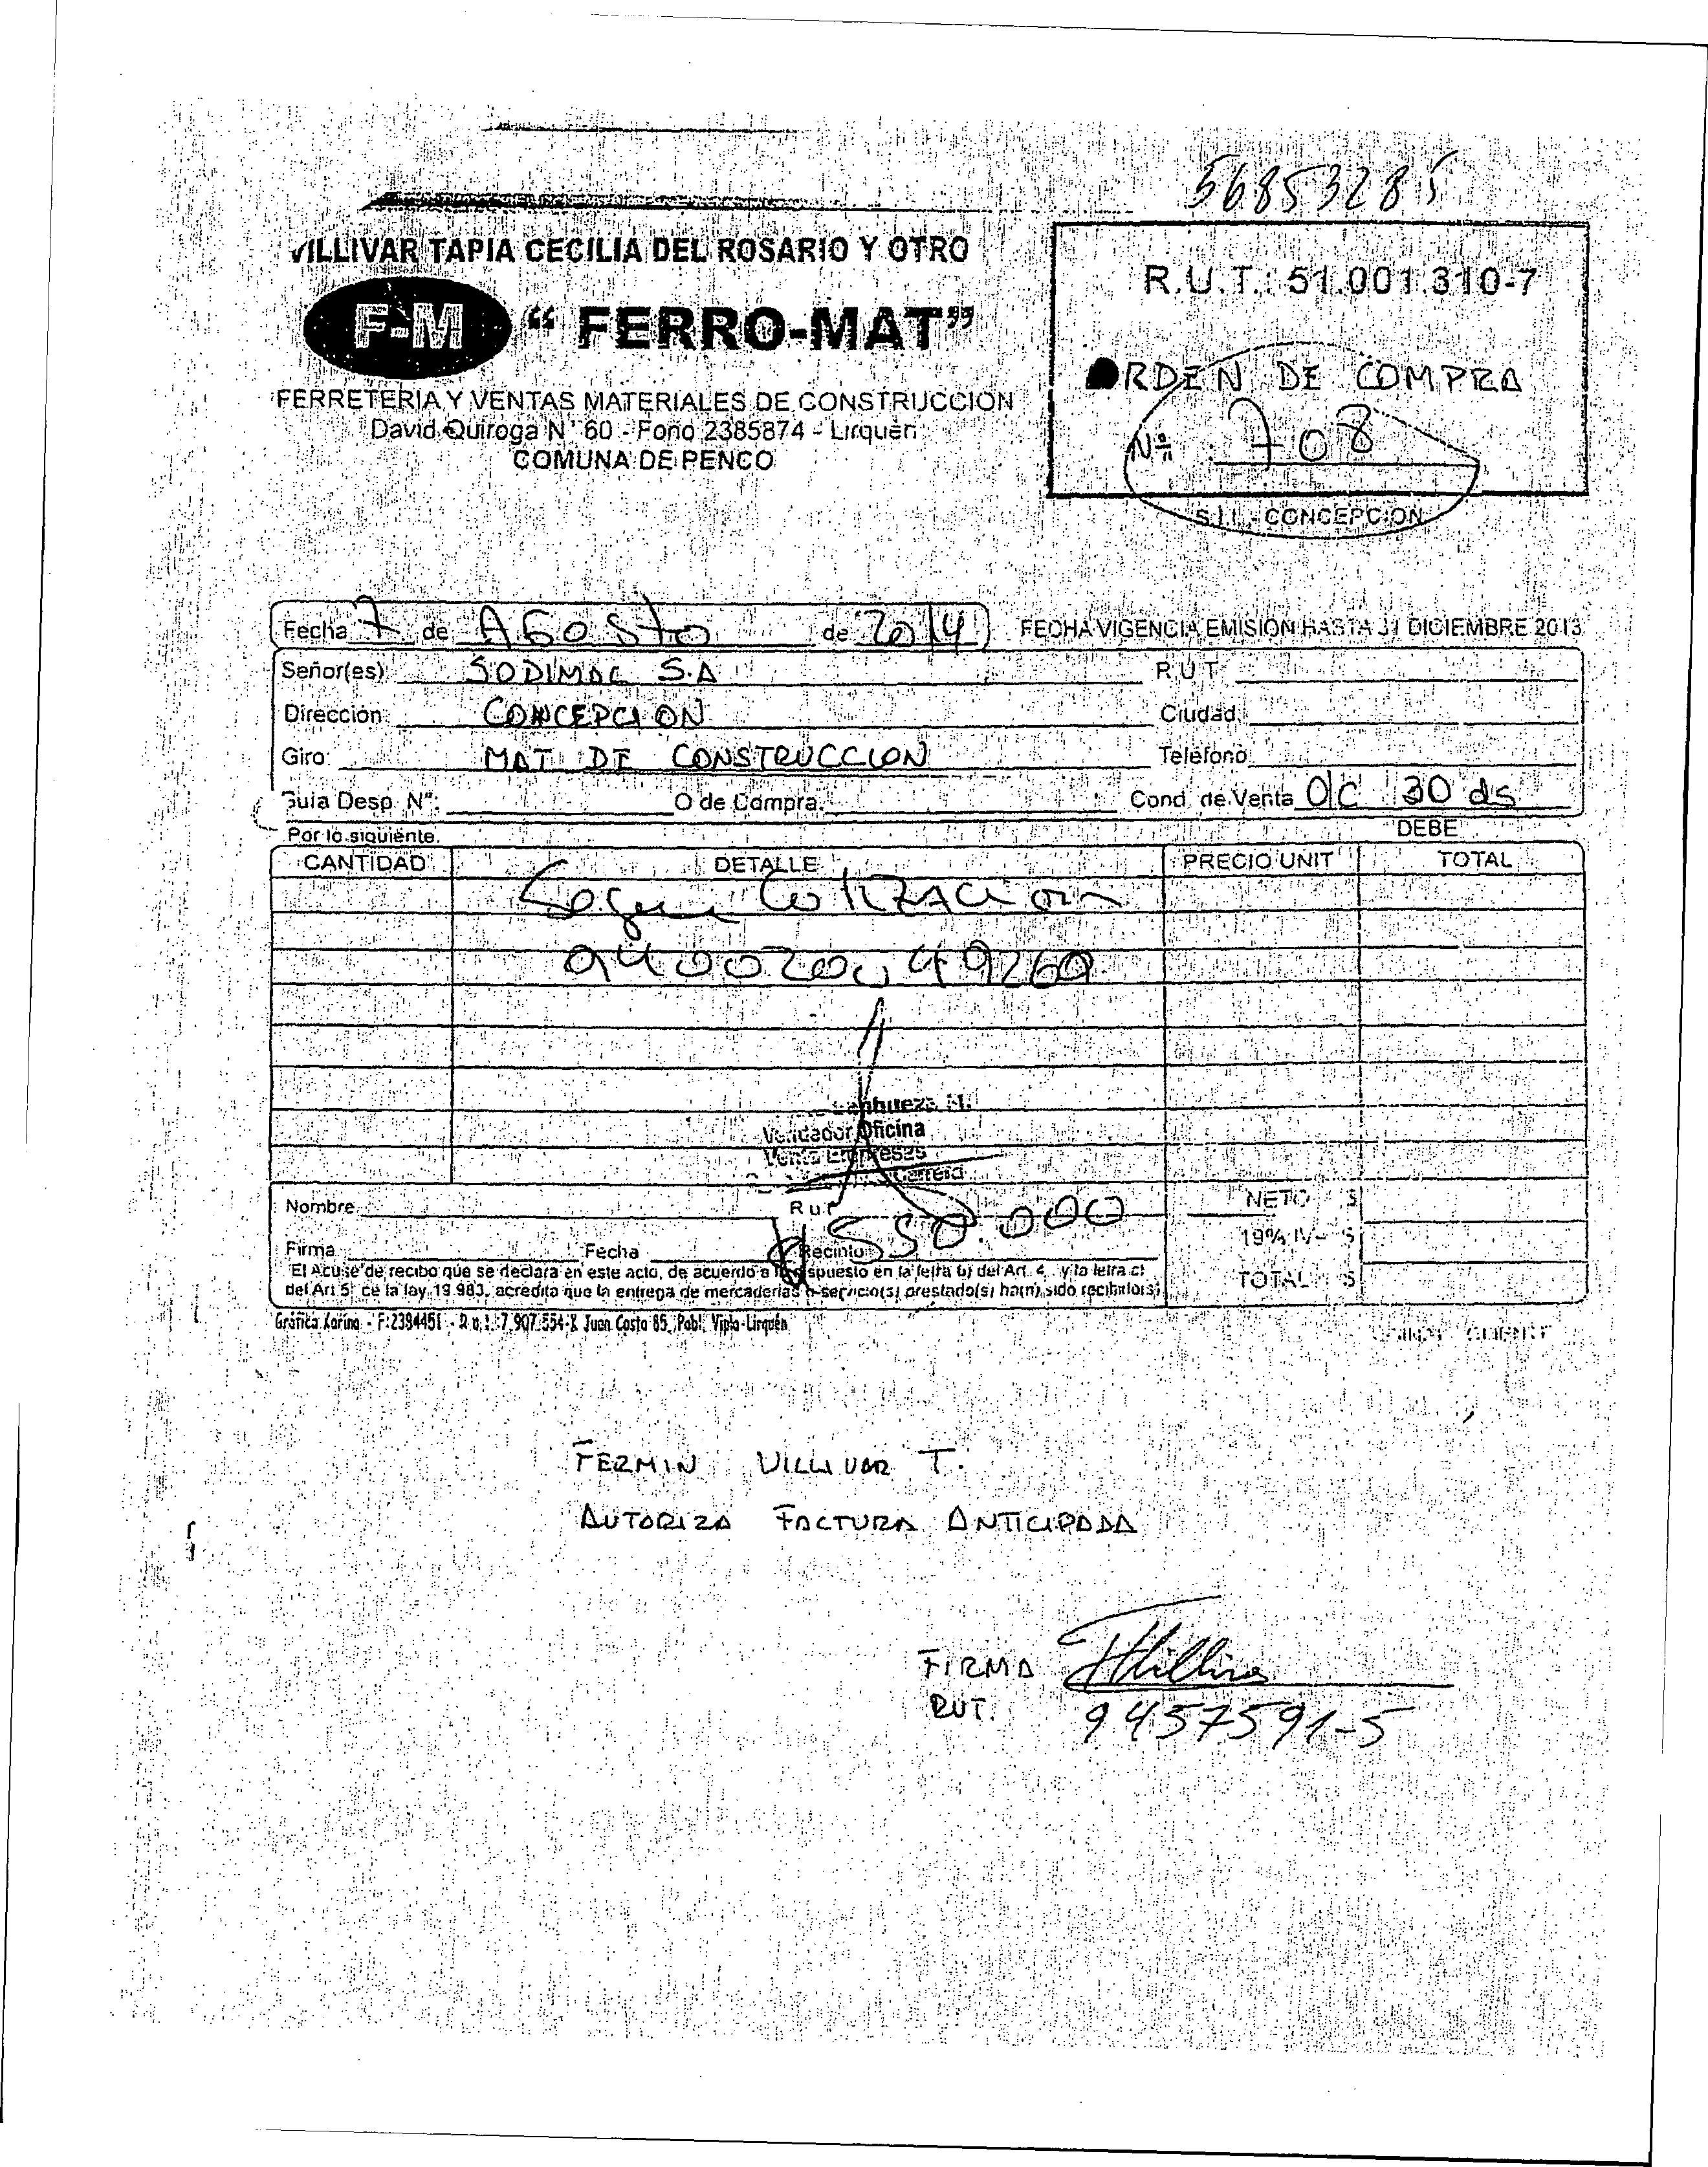 56853285
VILLIVAR TAPIA CECILIA DEL ROSARIO Y OTRO
F-M " FERRO-MAT"
FERRETERIA Y VENTAS MATERIALES DE CONSTRUCCION
David Quiroga N° 60 - Fono 2385874 - Lirquén
COMUNA DE PENCO
R.U.T.: 51.001.310-7
ORDEN DE COMPRA
Nº 708
S.I.I. - CONCEPCION
Fecha 7 de Agosto de 2014
FECHA VIGENCIA EMISION HASTA 31 DICIEMBRE 2013
Señor(es) SODIMAC S.A R.U.T.
Dirección CONCEPCION Ciudad
Giro: MAT DE CONSTRUCCION Teléfono
Guia Desp. N°. O de Compra. Cond. de Venta O/C 30 ds
Por lo siguiente. DEBE
CANTIDAD DETALLE PRECIO UNIT TOTAL
Segun Cotizacion
Vendedor Oficina
Venta Empresas
Nombre Rut NETO $
$550.000
Firma Fecha Recinto 19% IVA $
El Acuse de recibo que se declara en este acto, de acuerdo a lo dispuesto en la letra b) del Art. 4 y la letra c)
del Art 5 de la ley 19.983, acredita que la entrega de mercaderias o servicio(s) prestado(s) ha(n) sido recibido(s)
TOTAL $
Gráfica Karina - F:2384451 - Juan Costa 85, Pobl. Vipla-Lirquén
FERMIN VILLIVAR T.
AUTORIZA FACTURA ANTICIPADA
FIRMA
RUT. 9457591-5